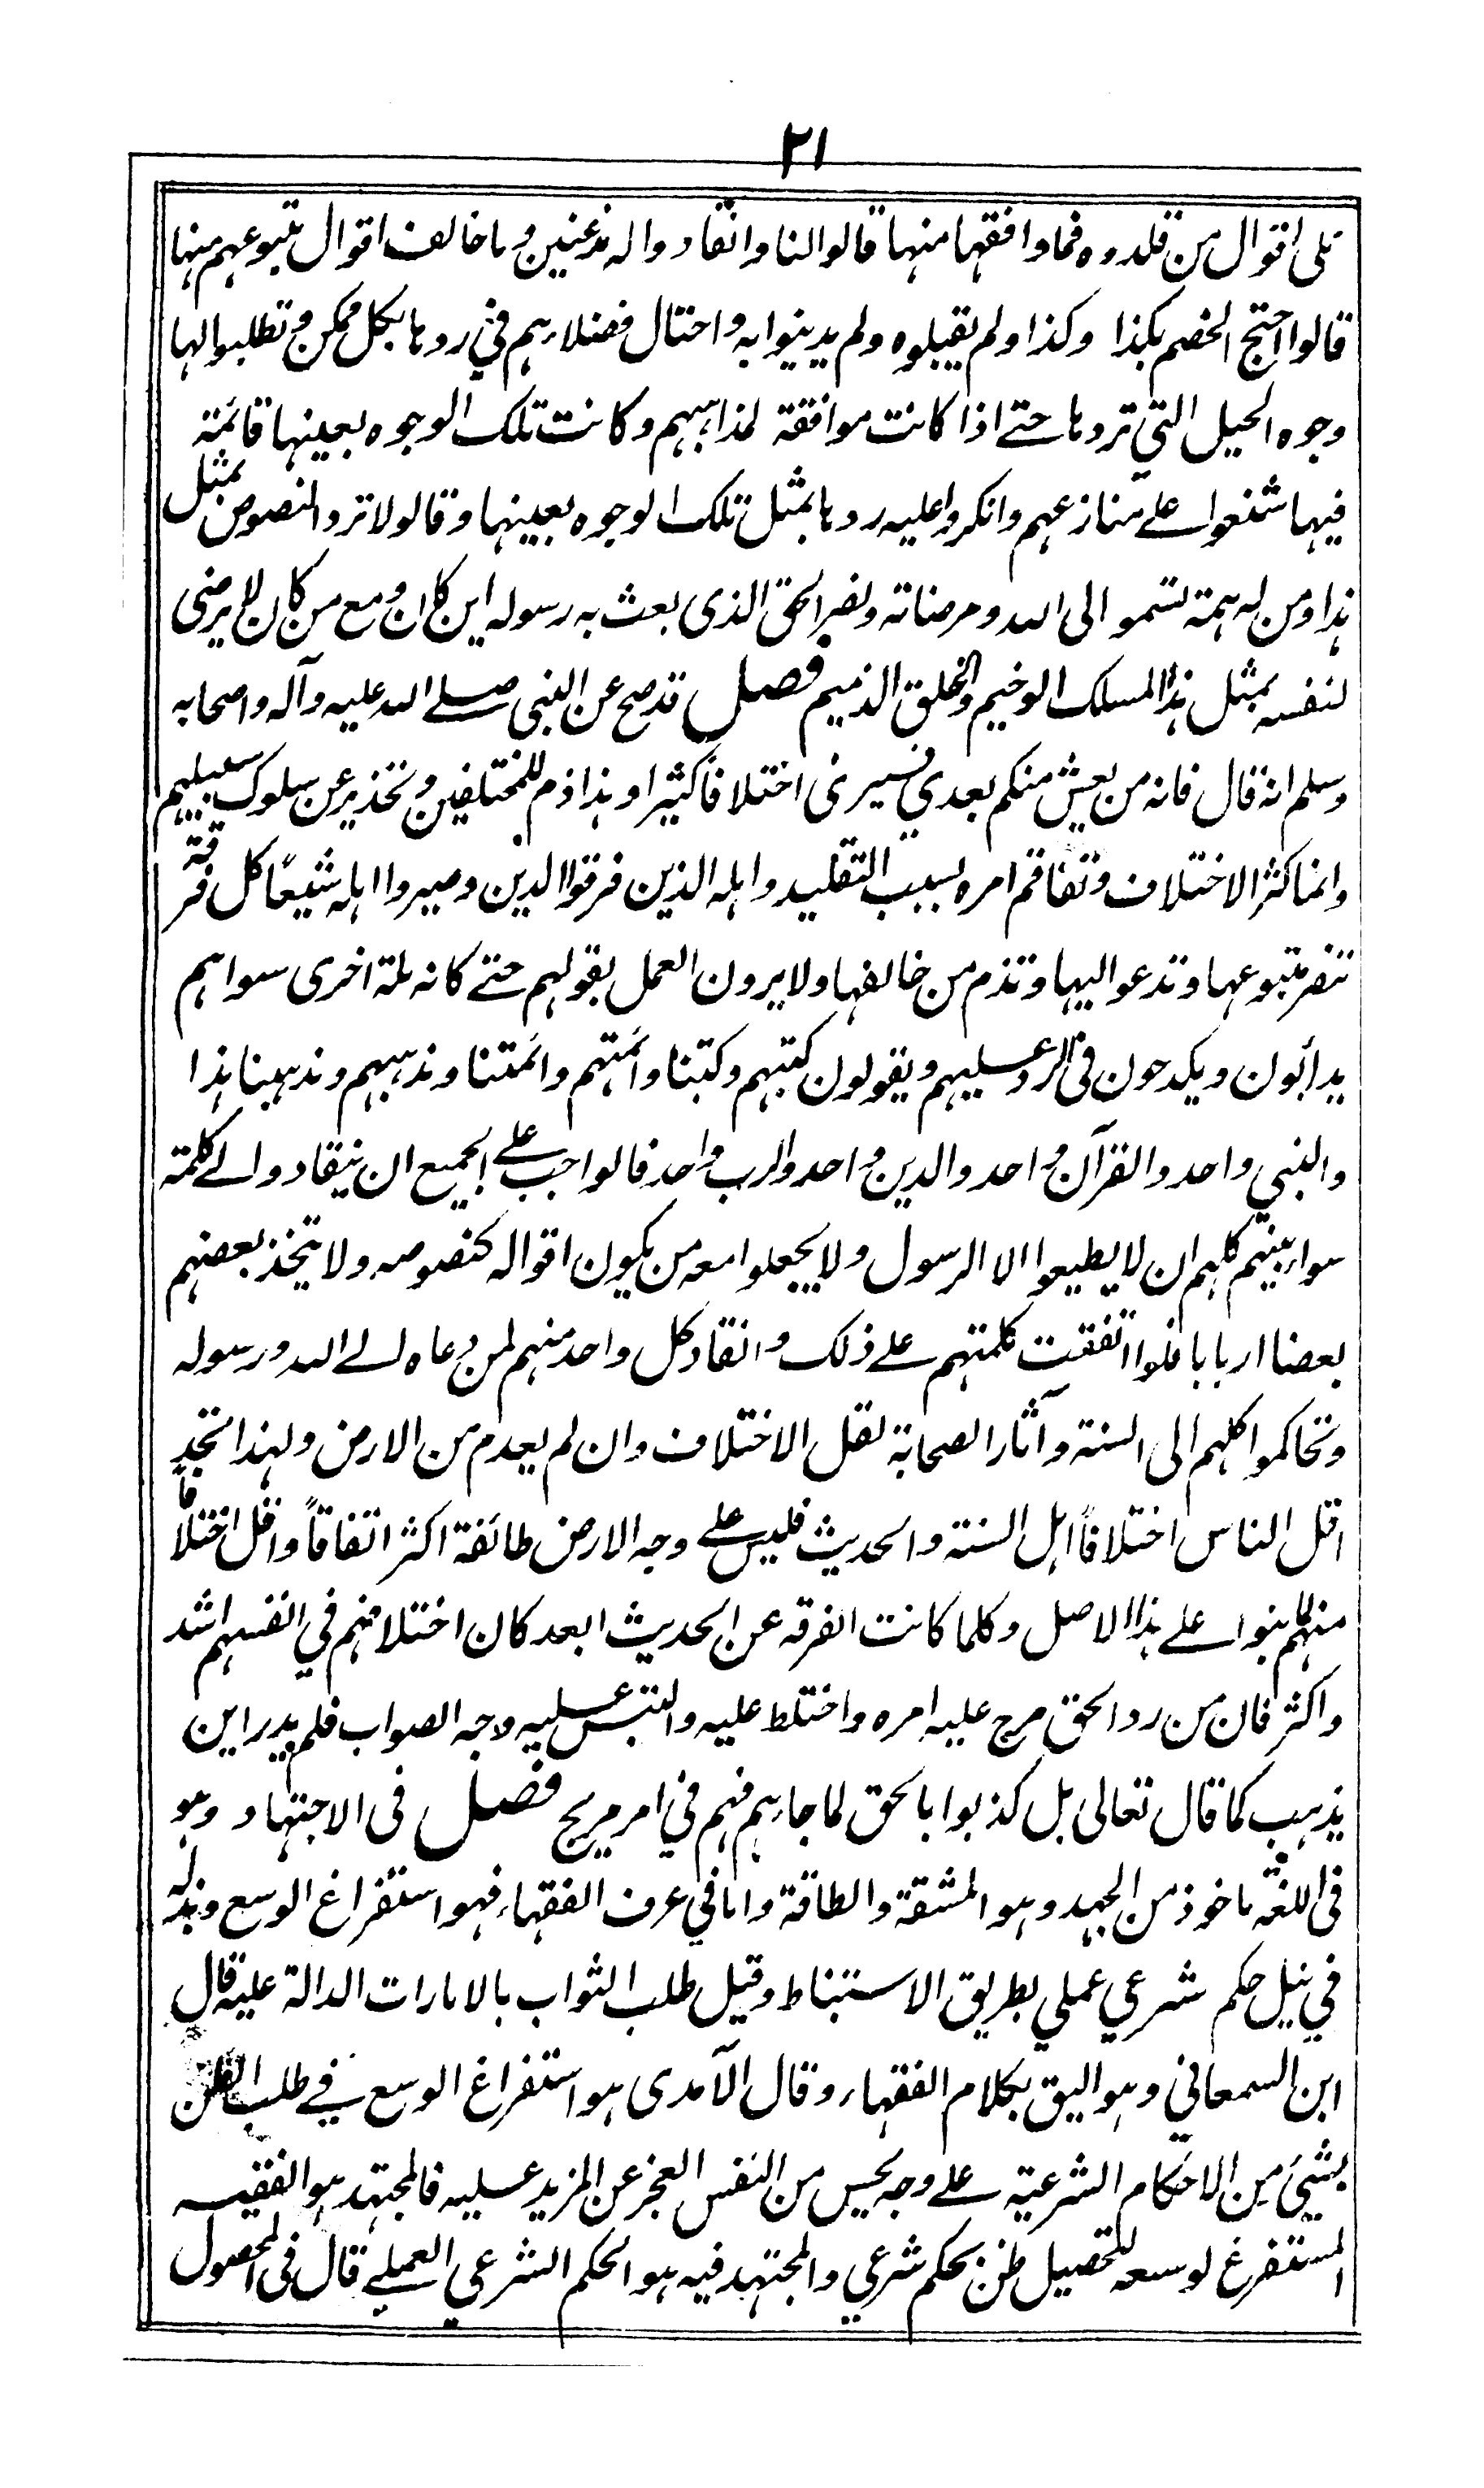 ٢١
على اقوال من قلدوه فما وافقها منها قالوا لنا وانقادوا له مذعنين وما خالف اقوال متبوعهم منها
قالوا احتج الخصم بكذا وكذا ولم يقبلوه ولم يدينوا به واحتال فضلاءهم في ردها بكل ممكن وتطلبوا لها
وجوه الحيل التي تردها حتے اذا كانت موافقة لمذاهبهم وكانت تلك الوجوه بعينها قائمة
فيها شنعوا علے منازعهم وانكروا عليه ردها بمثل تلك الوجوه بعينها وقالوا لا ترد النصوص بمثل
هذا ومن له همة تسمو الى الله ومرضاته ونصر الحق الذى بعث به رسوله اين كان ومع من كان لا يرضى
لنفسه بمثل هذا المسلك الوخيم والخلق الذميم فصل قد صح عن النبى صلے الله عليه وآله واصحابه
وسلم انه قال فانه من يعش منكم بعدي فسيرى اختلافاً كثيرا وهذا ذم للمختلفين وتحذير عن سلوك سبيلهم
وانما كثر الاختلاف وتفاقم امره بسبب التقليد واهله الذين فرقوا الدين وصيروا اهله شيعًا كل فرقة
تنصر متبوعها وتدعو اليها وتذم من خالفها ولا يرون العمل بقولهم حتے كانه ملة اخرى سواهم
يدأبون ويكدحون فى الرد عليهم ويقولون كتبهم وكتبنا وائمتهم وائمتنا ومذهبهم ومذهبنا هذا
والنبي واحد والقرآن واحد والدين واحد والرب واحد فالواجب علے الجميع ان ينقادوا الے كلمة
سواء بينهم كلهم ان لا يطيعوا الا الرسول ولا يجعلوا معه من يكون اقواله كنصوصه ولا يتخذ بعضهم
بعضا اربابا فلو اتفقت كلمتهم علے ذلك وانقاد كل واحد منهم لمن دعاه الے الله ورسوله
وتحاكموا كلهم الى السنة وآثار الصحابة لقل الاختلاف وان لم يعدم من الارض ولهذا تجد
اقل الناس اختلافاً اهل السنة والحديث فليس علے وجه الارض طائفة اكثر اتفاقاً واقل اختلافاً
منهم لما بنوا علے هذا الاصل وكلما كانت الفرقه عن الحديث ابعد كان اختلافهم في انفسهم اشد
واكثر فان من رد الحق مرج عليه امره واختلط عليه والتبس عليه وجه الصواب فلم يدر اين
يذهب كما قال تعالى بل كذبوا بالحق لما جاءهم فهم في امر مريج فصل فى الاجتهاد وهو
فى اللغة ماخوذ من الجهد وهو المشقة والطاقة واما في عرف الفقهاء فهو استفراغ الوسع وبذله
في نيل حكم شرعي عملي بطريق الاستنباط وقيل طلب الثواب بالامارات الدالة عليه قال
ابن السمعاني وهو اليق بكلام الفقهاء وقال الآمدى هو استفراغ الوسع في طلب الظن
بشيئ من الاحكام الشرعية علے وجه يحس من النفس العجز عن المزيد عليه فالمجتهد هو الفقيه
المستفرغ لوسعه لتحصيل ظن بحكم شرعي والمجتهد فيه هو الحكم الشرعي العملے قال فى المحصول